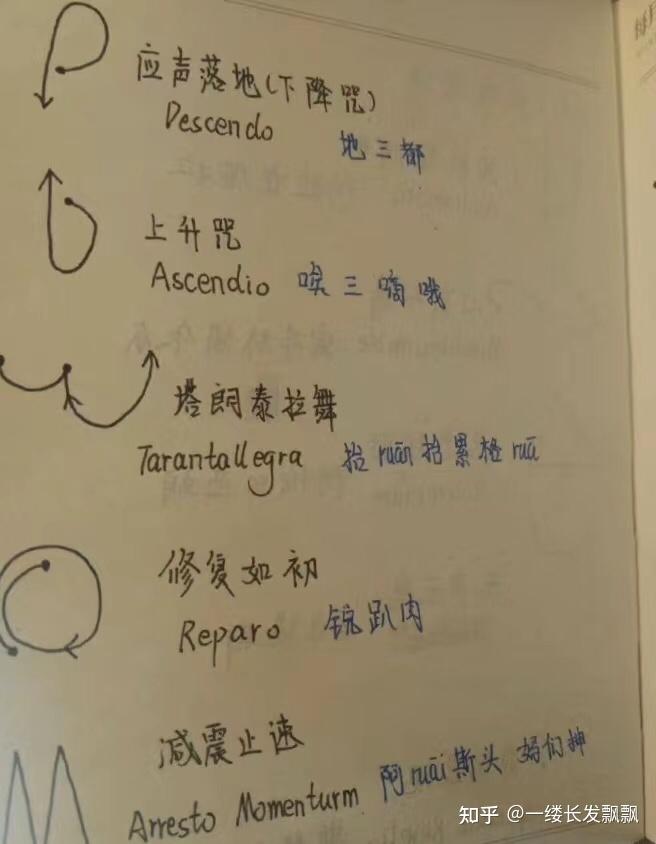 应声落地(下降咒)
Descendo 地三都
上升咒
Ascendio 唉三嘀哦
塔朗泰拉舞
Tarantallegra 抬ruān抬累格ruā
修复如初
Reparo 锐趴肉
减震止速
Arresto Momenturm 阿ruāi斯头 妈们抻
知乎 @一缕长发飘飘